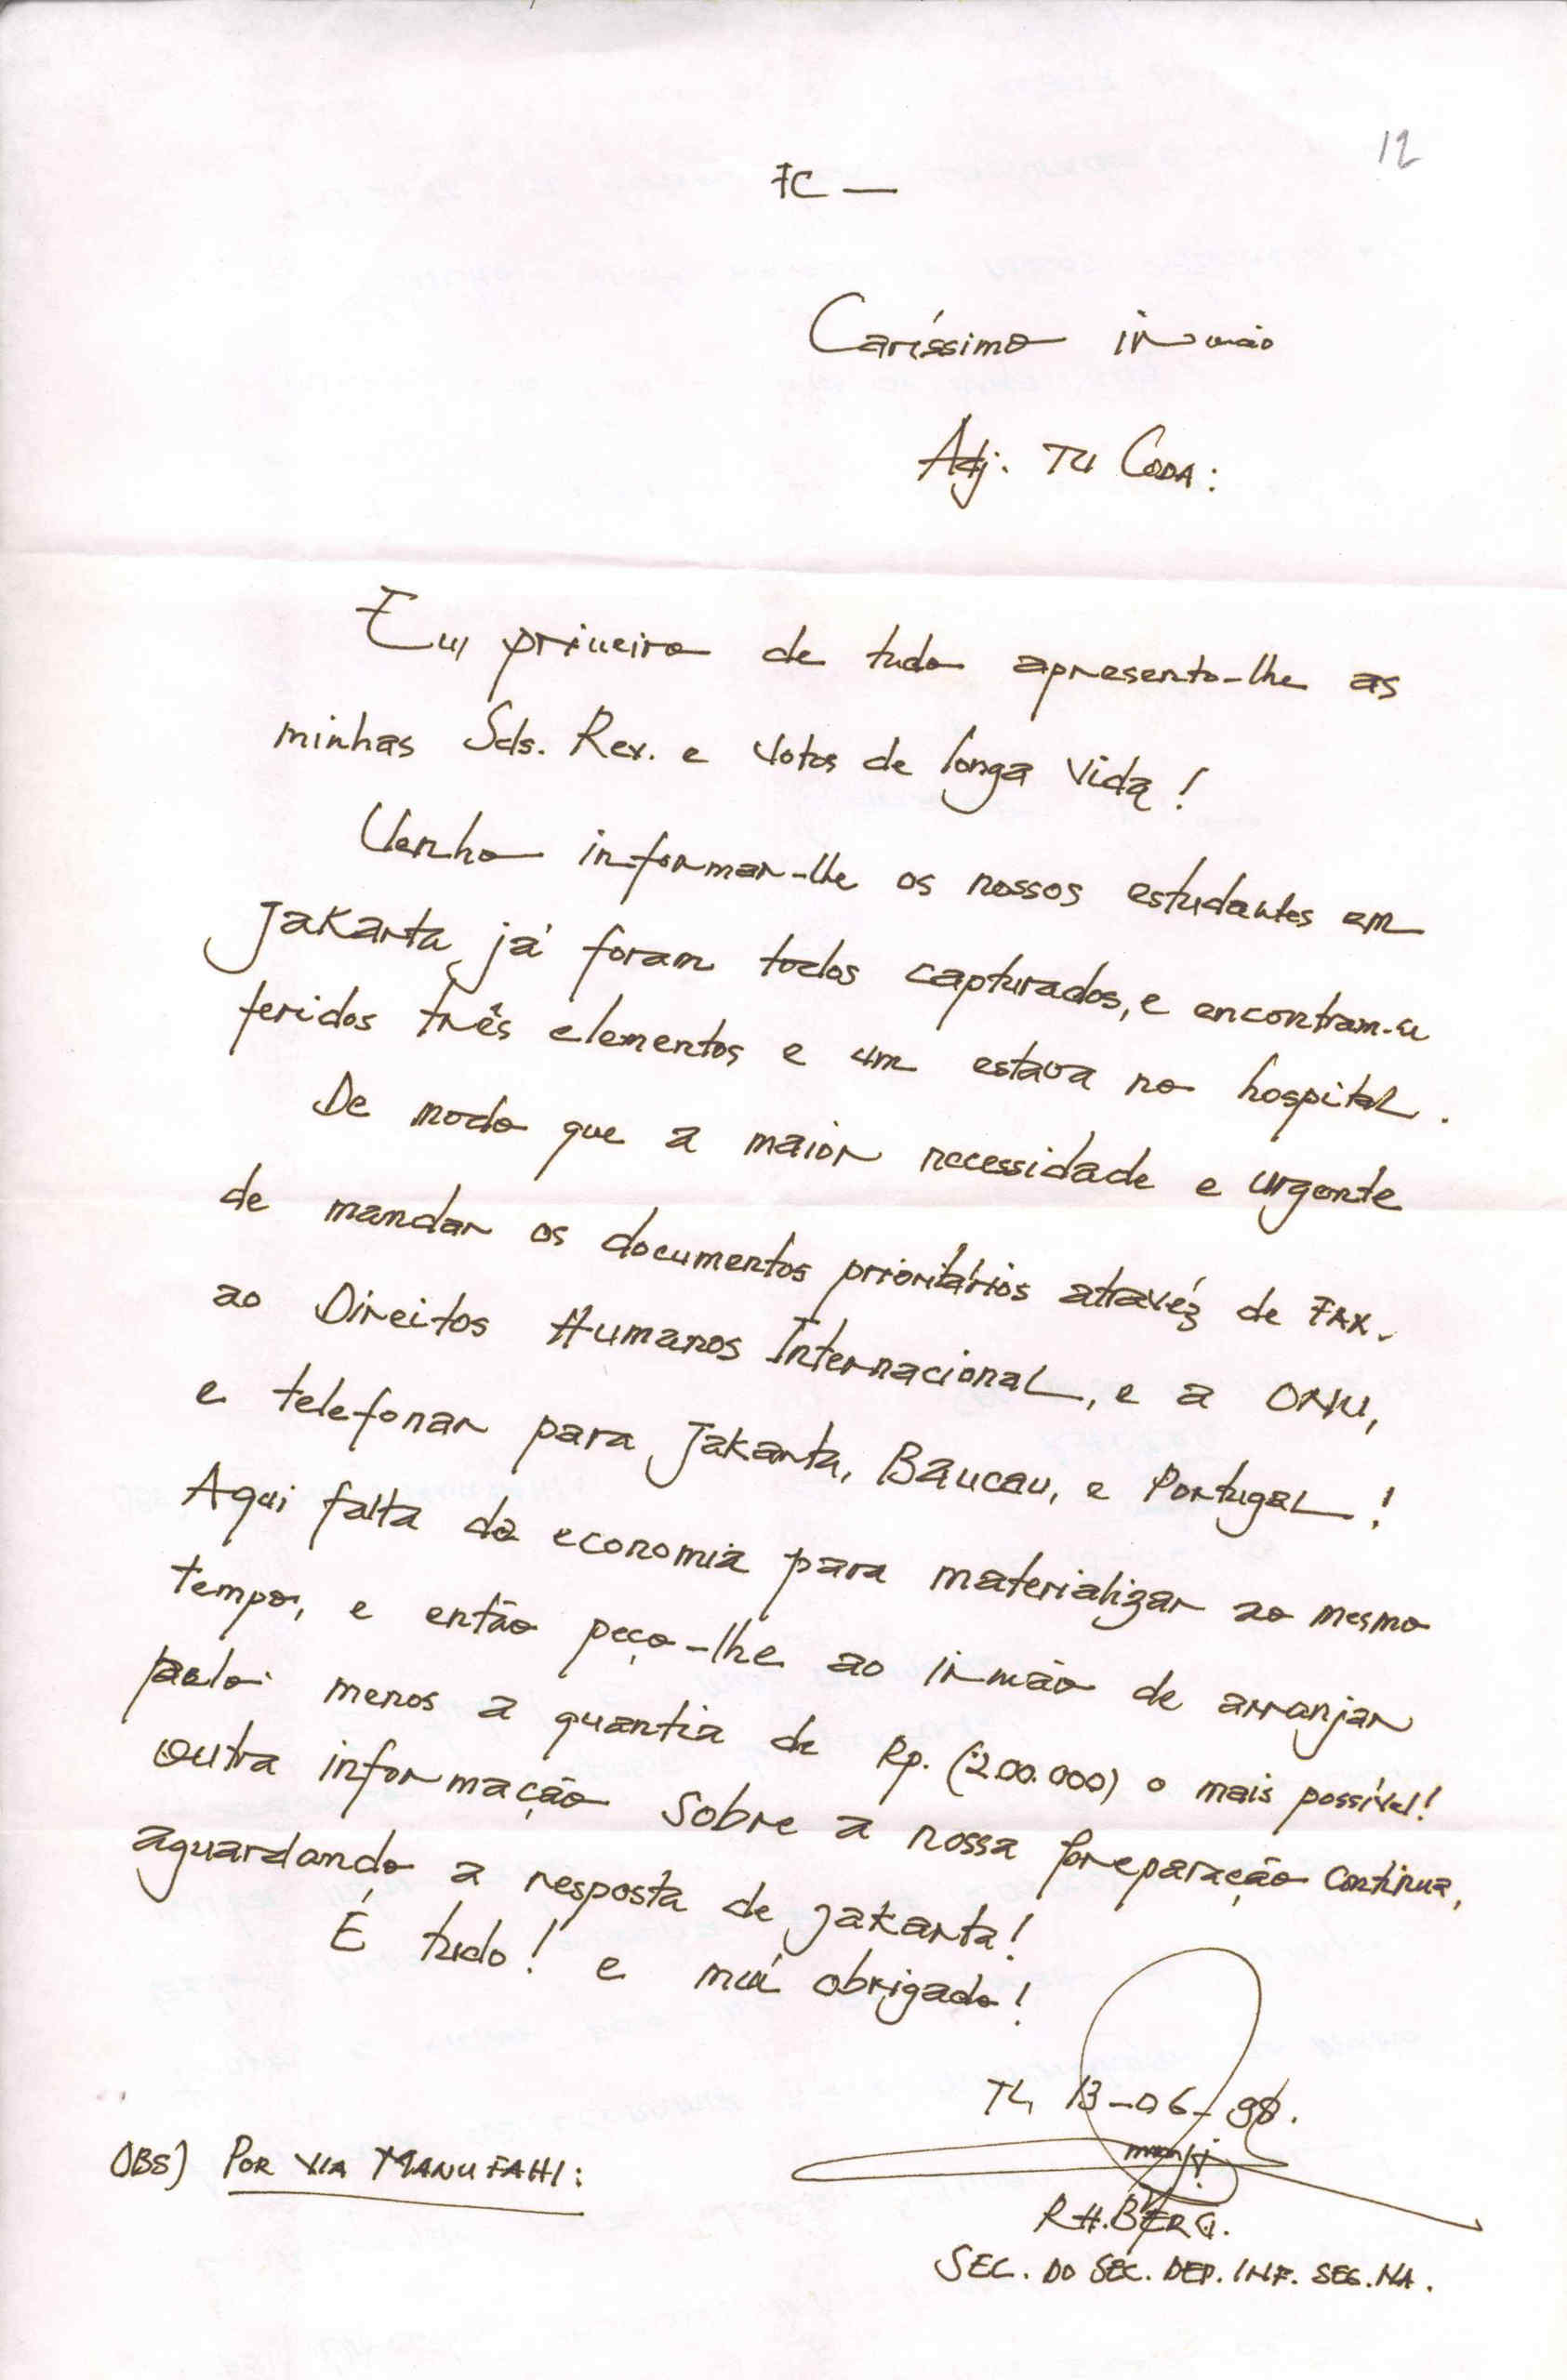 12
FC —
Caríssimo irmão
Adj. TU CODA:
Em primeiro de tudo apresento-lhe as
minhas Sds. Rev. e votos de longa vida!
Venho informar-lhe os nossos estudantes em
Jakarta já foram todos capturados, e encontram-se
feridos três elementos e um estava no hospital.
De modo que a maior necessidade e urgente
de mandar os documentos prioritários atravéz de FAX.
ao Direitos Humanos Internacional, e a ONU,
e telefonar para Jakarta, Baucau, e Portugal!
Aqui falta da economia para materializar ao mesmo
tempo, e então peço-lhe ao irmão de arranjar
pelo menos a quantia de Rp. (200.000) o mais possível!
Outra informação sobre a nossa preparação continua,
aguardando a resposta de Jakarta!
É tudo! e obrigado!
TL, 13-06-98.
R.H. BERG.
SEC. DO SEC. DEP. INF. SEG. NA.
OBS) POR VIA MANUFAHI: